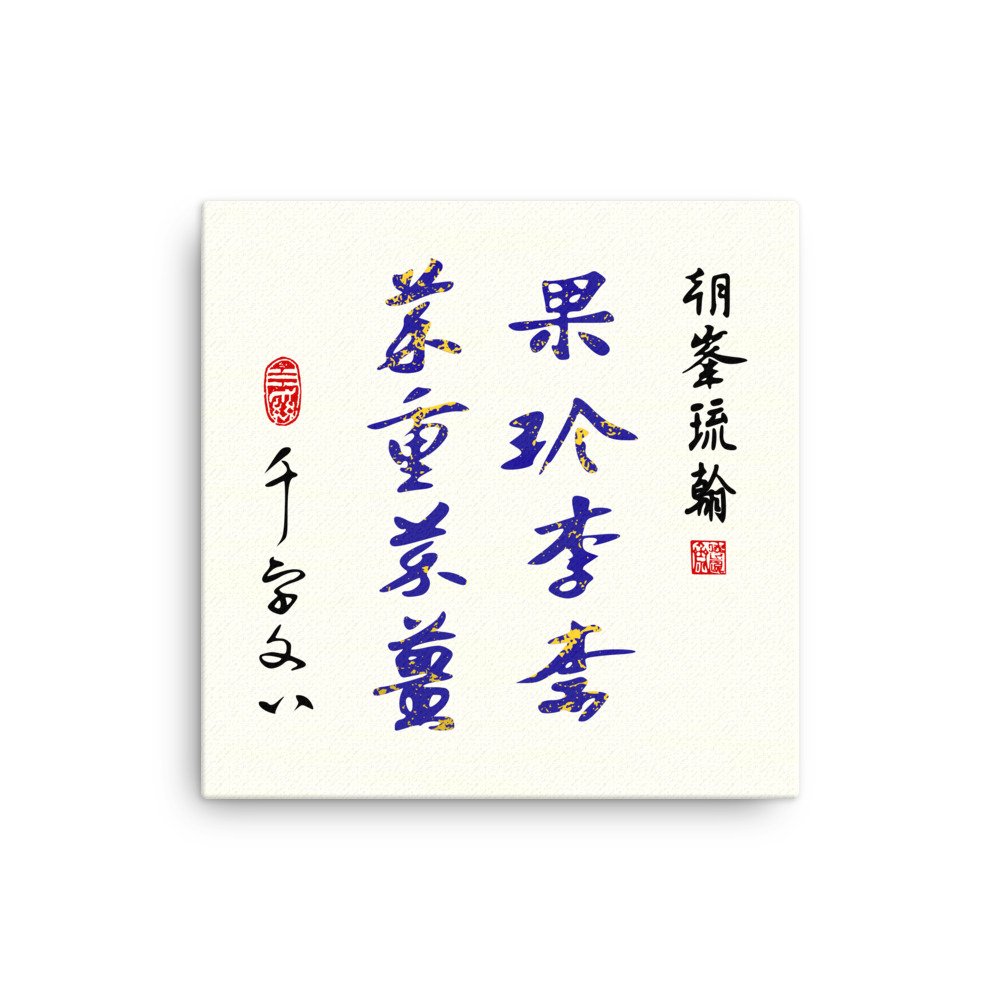 朝峯琉翰
果珍李柰
菜重芥薑
千字文八